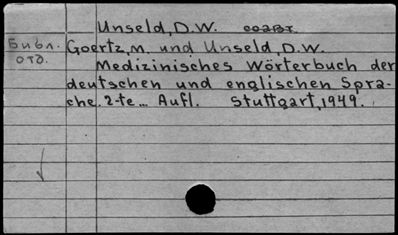 Unseld, D.W. соавт.
Библ. Goertz, M. und Unseld, D.W.
отд. Medizinisches Wörterbuch der
deutschen und englischen Spra-
che. 2-te... Aufl. Stuttgart, 1949.